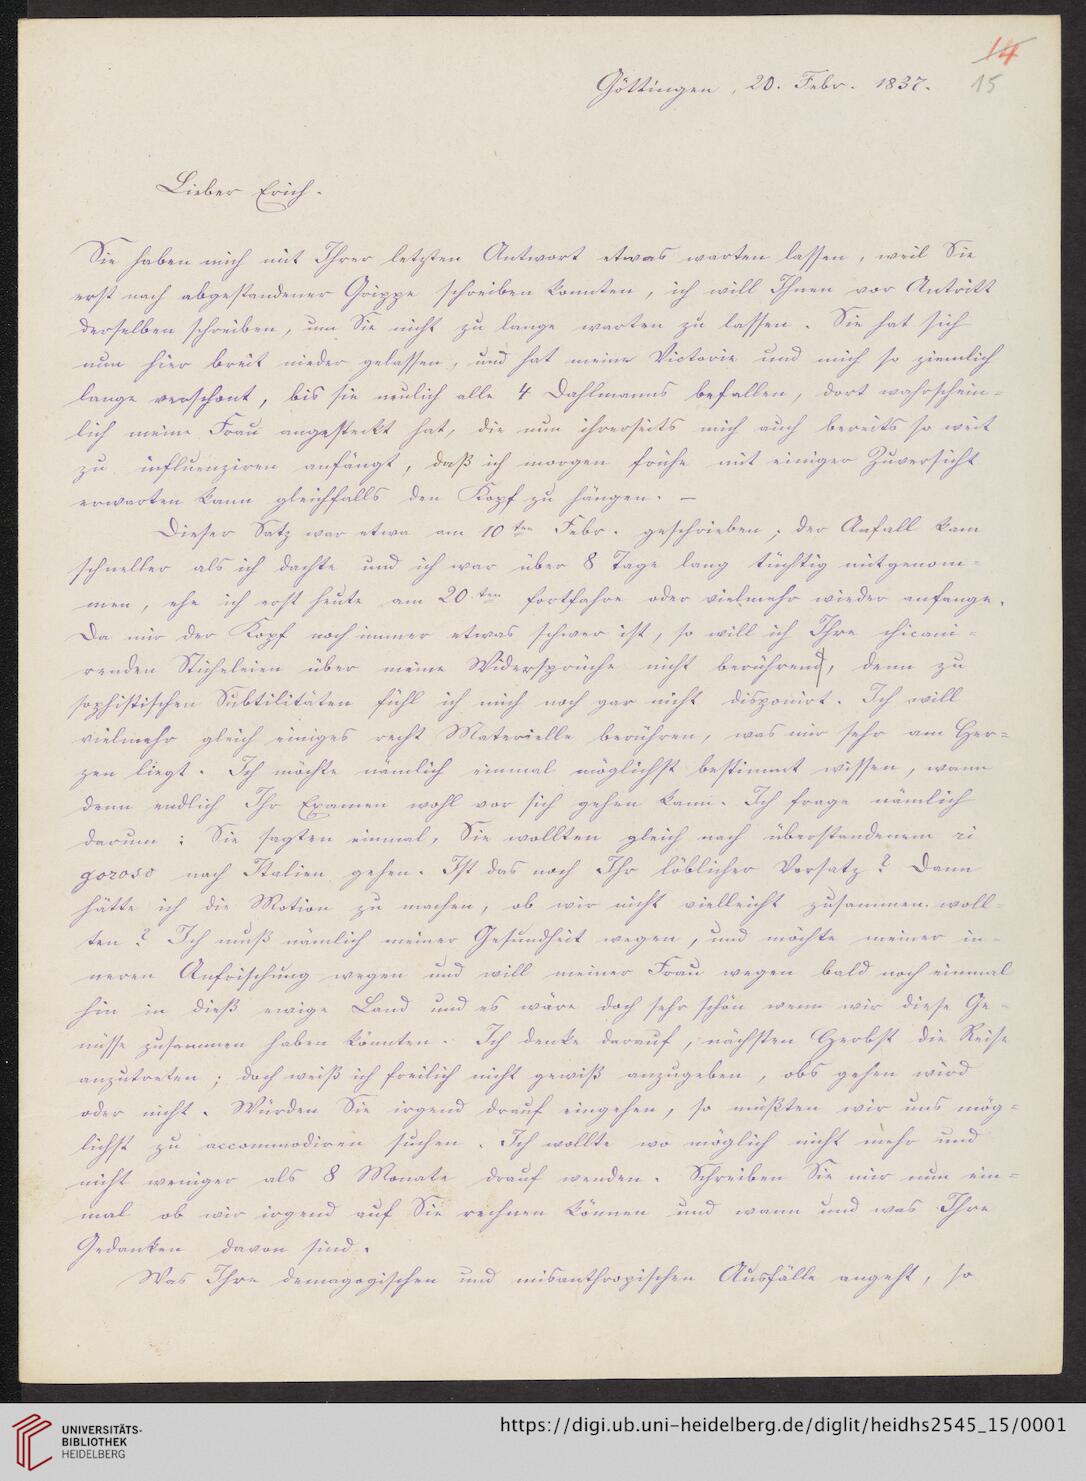 14
15
Göttingen, 20. Febr. 1837.
Lieber Erich.
Sie haben mich mit Ihrer letzten Antwort etwas warten lassen, weil Sie
erst nach abgestandener Grippe schreiben konnten, ich will Ihnen vor Antritt
derselben schreiben, um Sie nicht zu lange warten zu lassen. Sie hat sich
nun hier breit nieder gelassen, und hat meine Victorie und mich so ziemlich
lange verschont, bis sie neulich alle 4 Dahlmanns befallen, dort wahrschein=
lich meine Frau angesteckt hat, die nun ihrerseits mich auch bereits so weit
zu influenziren anfängt, daß ich morgen frühe mit einiger Zuversicht
erwarten kann gleichfalls den Kopf zu hängen. —
Dieser Satz war etwa am 10ten Febr. geschrieben; der Anfall kam
schneller als ich dachte und ich war über 8 Tage lang tüchtig mitgenom=
men, ehe ich erst heute am 20.ten fortfahre oder vielmehr wieder anfange.
Da mir der Kopf noch immer etwas schwer ist, so will ich Ihre chicani=
renden Sticheleien über meine Widersprüche nicht berühren, denn zu
sophistischen Subtilitäten fühl ich mich noch gar nicht disponirt. Ich will
vielmehr gleich einiges recht Materielle berühren, was mir sehr am Her=
zen liegt. Ich möchte nämlich einmal möglichst bestimmt wissen, wann
denn endlich Ihr Examen wohl vor sich gehen kann. Ich frage nämlich
darum: Sie sagten einmal, Sie wollten gleich nach überstandenem ri
goroso nach Italien gehen. Ist das noch Ihr löblicher Vorsatz? Dann
hätte ich die Motion zu machen, ob wir nicht vielleicht zusammen woll=
ten? Ich muß nämlich meiner Gesundheit wegen, und möchte meiner in=
neren Anfrischung wegen und will meiner Frau wegen bald noch einmal
hin in dieß ewige Land und es wäre doch sehr schön wenn wir diese Ge=
nüsse zusammen haben könnten. Ich denke darauf, nächsten Herbst die Reise
anzutreten; doch weiß ich freilich nicht gewiß anzugeben, obs gehen wird
oder nicht. Würden Sie irgend drauf eingehen, so müßten wir uns mög=
lichst zu accommodiren suchen. Ich wollte wo möglich nicht mehr und
nicht weniger als 8 Monate drauf wenden. Schreiben Sie mir nun ein=
mal ob wir irgend auf Sie rechnen können und wann und was Ihre
Gedanken davon sind.
Was Ihre demagogischen und misanthropischen Ausfälle angeht, so
UNIVERSITÄTS-
BIBLIOTHEK
HEIDELBERG
https://digi.ub.uni-heidelberg.de/diglit/heidhs2545_15/0001